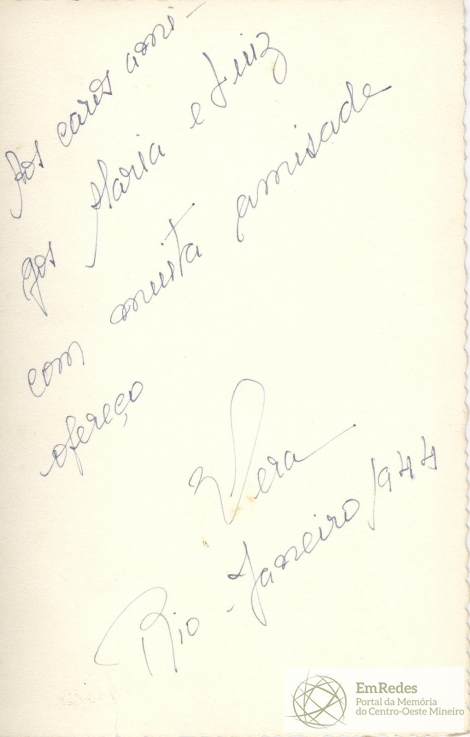 Aos caros ami-
gos Maria e Luiz
com muita amisade
ofereço
Vera
Rio - Janeiro 1944
EmRedes
Portal da Memória
do Centro-Oeste Mineiro